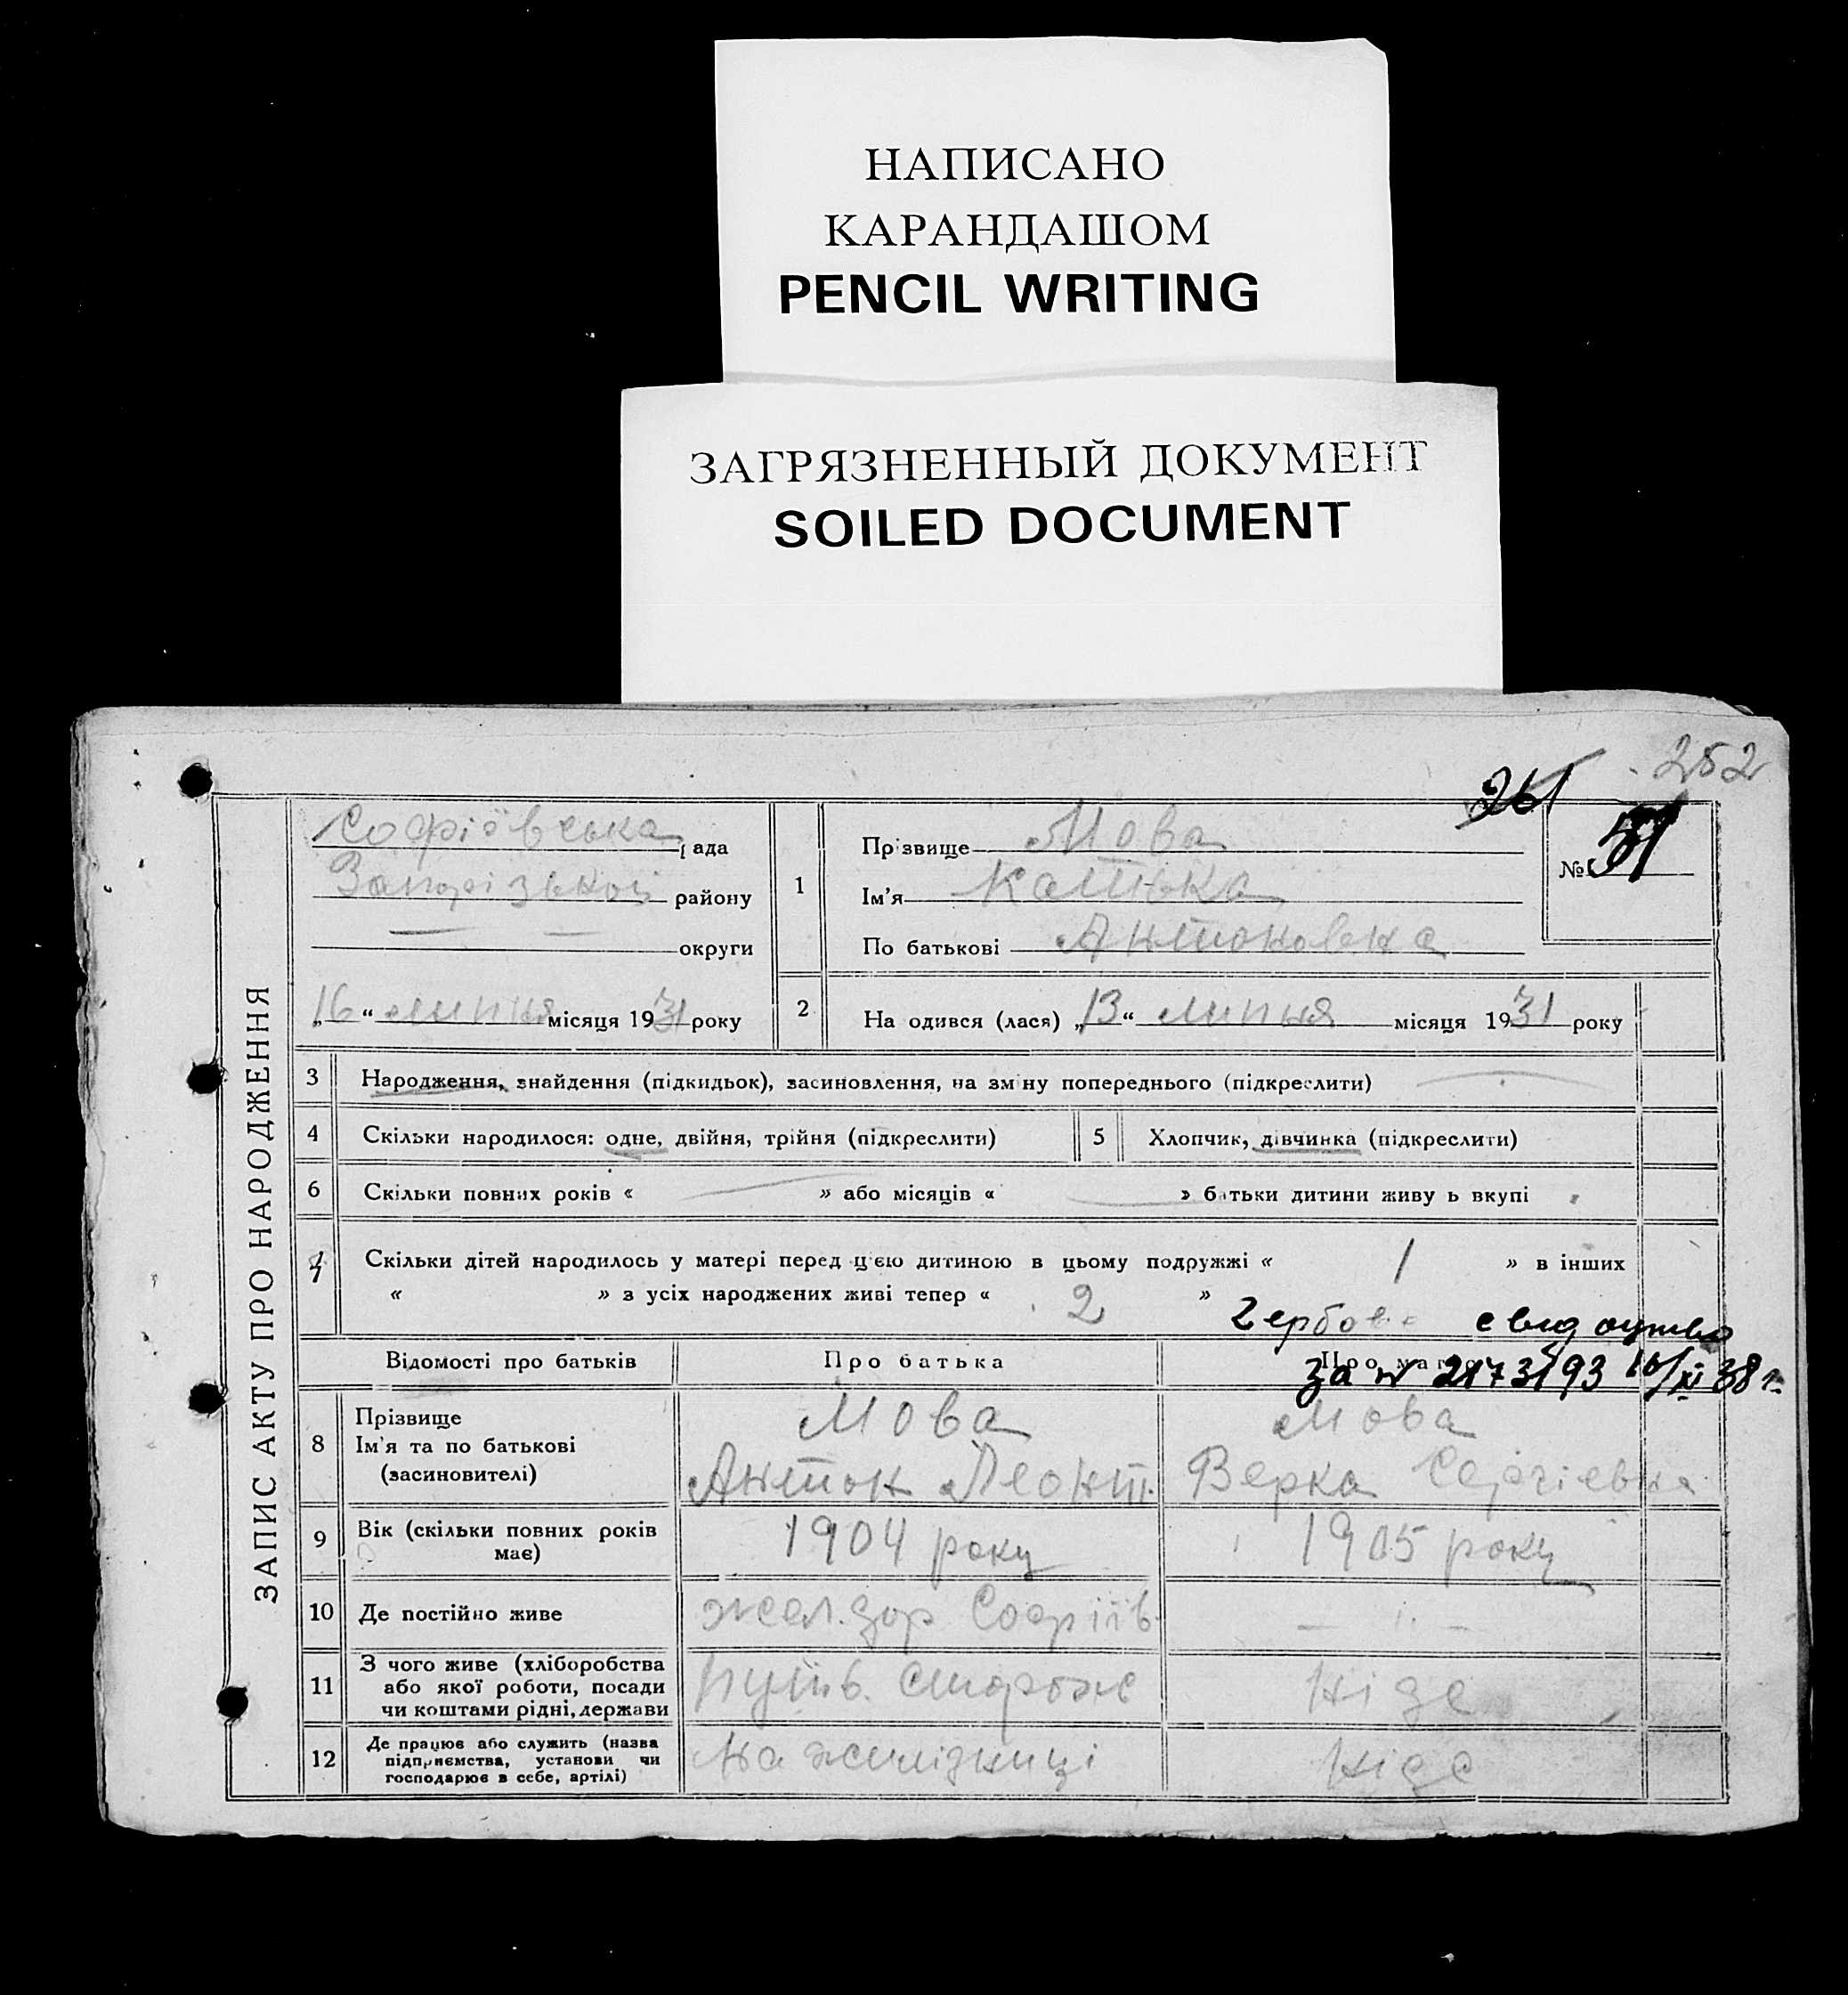 НАПИСАНО
КАРАНДАШОМ
PENCIL WRITING
ЗАГРЯЗНЕННЫЙ ДОКУМЕНТ
SOILED DOCUMENT
252
261
ЗАПИС АКТУ ПРО НАРОДЖЕННЯ
Софіївська рада
Запорізької району
— — округи
„16“ липня місяця 1931 року
1
Прізвище Мова
Ім'я
По батькові Антоновна
№ 51
2 На одився (лася) „13“ липня місяця 1931 року
3 Народження, знайдення (підкидьок), засиновлення, на зміну попереднього (підкреслити)
4 Скільки народилося: одне, двійня, трійня (підкреслити)
5 Хлопчик, дівчинка (підкреслити)
6 Скільки повних років « » або місяців « » батьки дитини живу ь вкупі
7 Скільки дітей народилось у матері перед цією дитиною в цьому подружжі « 1 » в інших
« » з усіх народжених живі тепер « 2 »
Гербове свидоцтво
за № 2173193 16/XI 38 г.
Відомості про батьків Про батька Про матір
8 Прізвище Мова Мова
Ім'я та по батькові
(засиновителі) Антон Леонт. Верка Сергіевна
9 Вік (скільки повних років має) 1904 року 1905 року
10 Де постійно живе жел. дор Софіїв — ıı —
11 З чого живе (хліборобства
або якої роботи, посади
чи коштами рідні, держави Путів. сторож Ніде
12 Де працює або служить (назва
підприємства, установи чи
господарює в себе, артілі) На желізниці Ніде